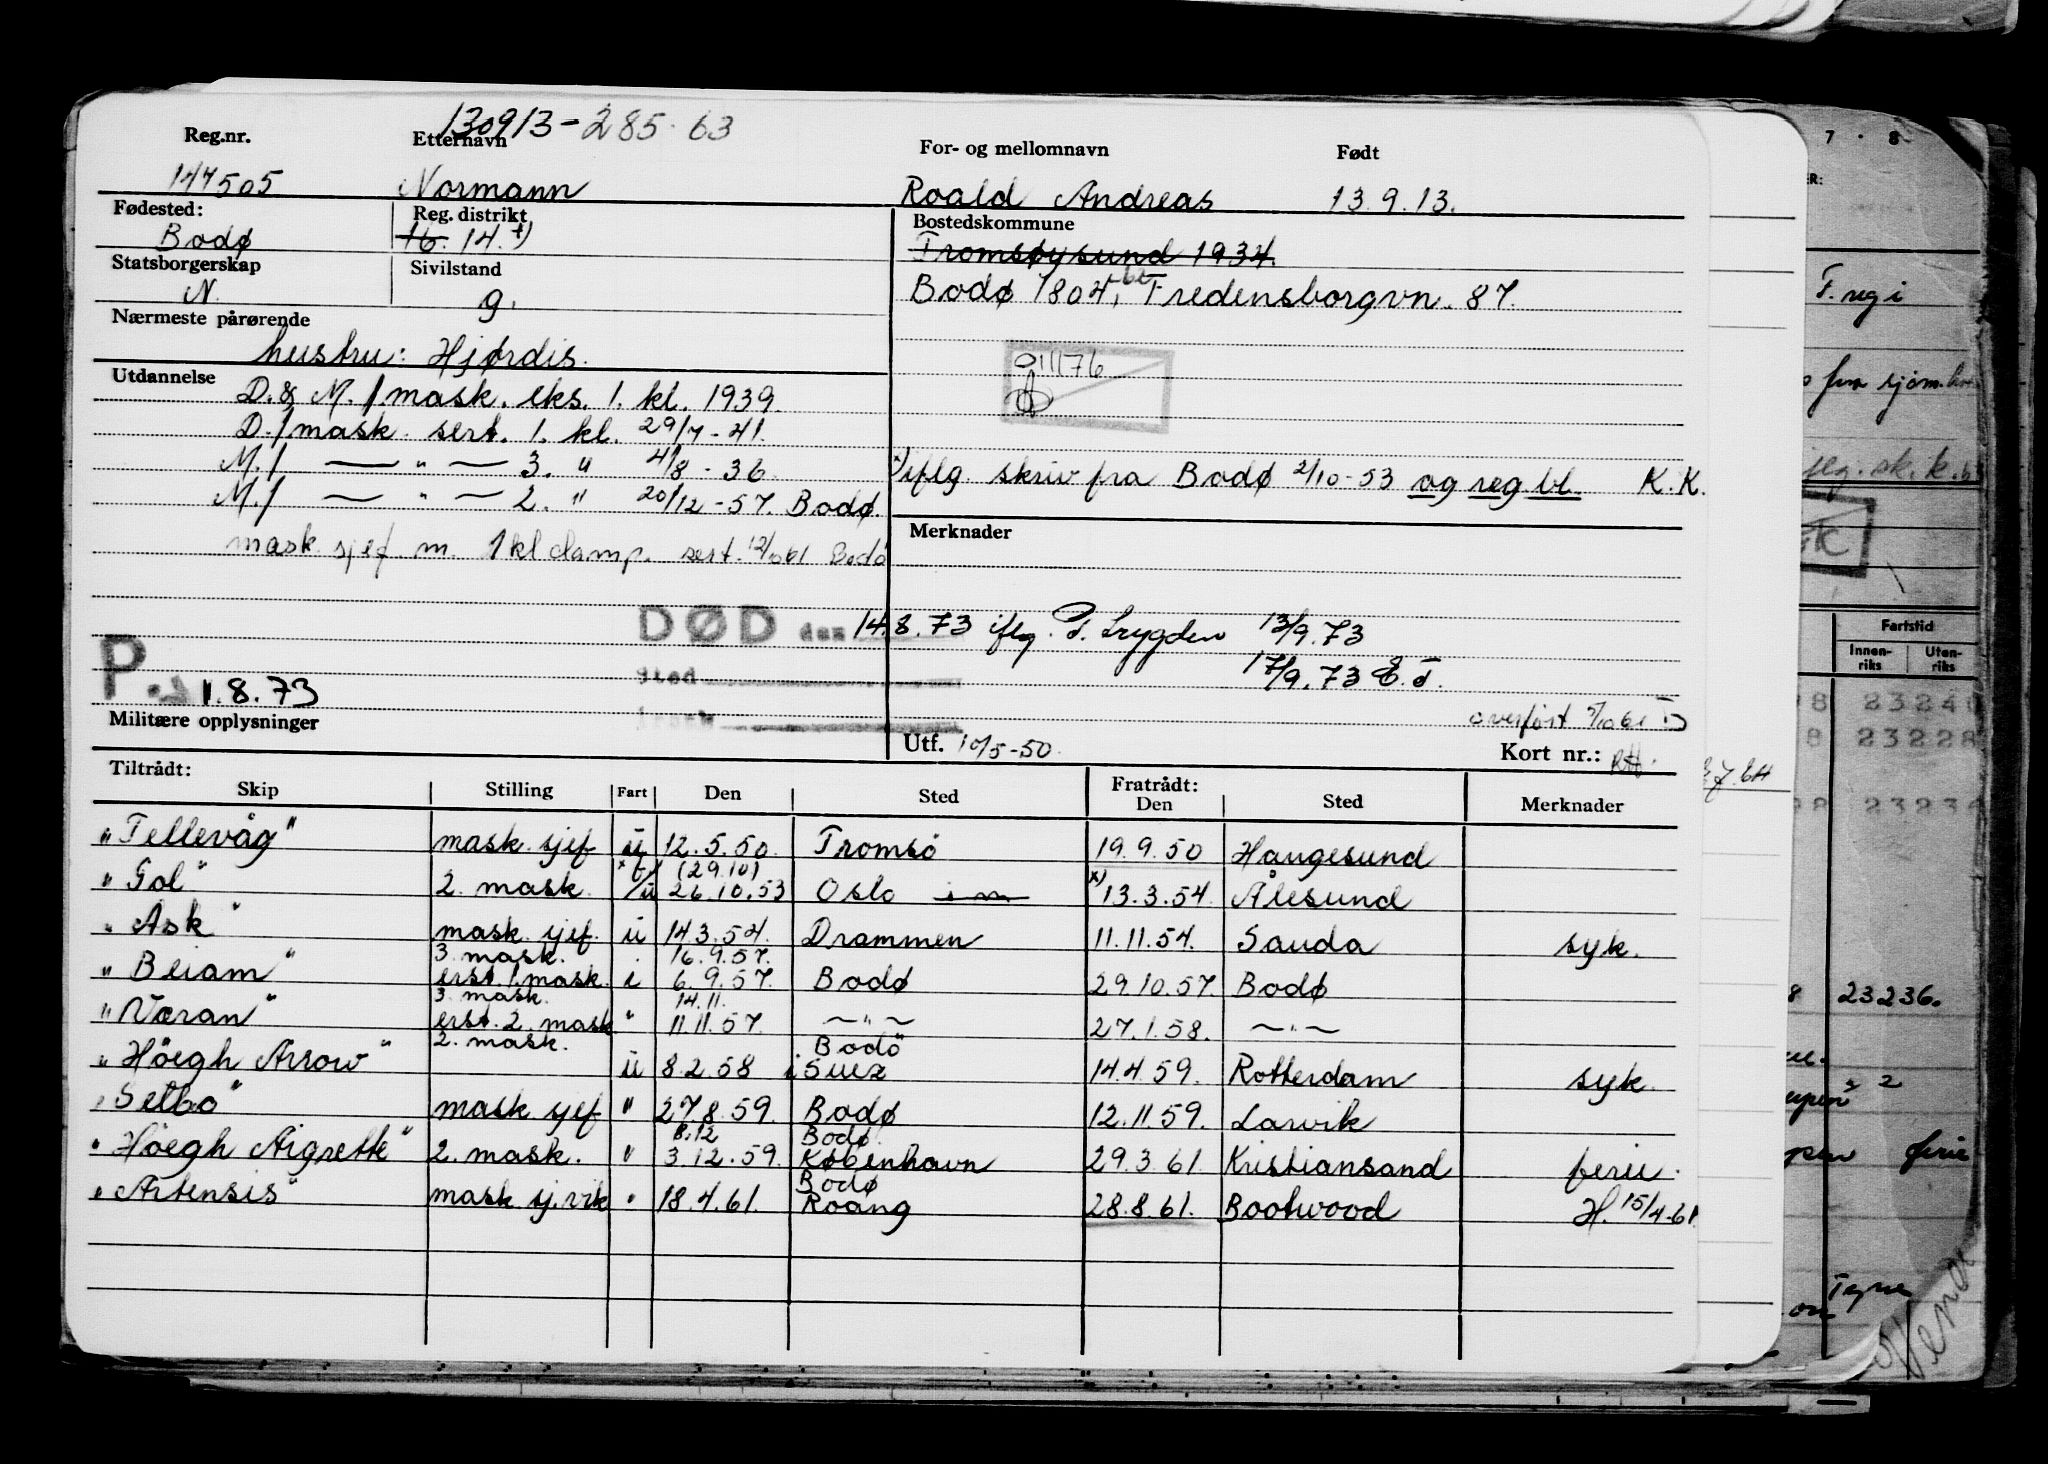 130913-285.63
Reg.nr. Etternavn For- og mellomnavn Født
147505 Normann Roald Andreas 13.9.13.
Fødested: Reg. distrikt Bostedskommune
Bodø 16. 14. x) Tromsøysund 1934.
Statsborgerskap Sivilstand
N. g. Bodø 1804, Fredensborgvn. 87.
Nærmeste pårørende
hustru: Hjørdis.
Utdannelse
D. & M./mask. eks. 1. kl. 1939.
011176
D./mask. sert. 1. kl. 29/7-41.
M./ — " — 3. " 4/8-36
x) iflg. skriv fra Bodø 2/10-53 og reg bl. K.K.
M./ — " — 2. " 20/12-57. Bodø.
Merknader
mask sjef m. 1 kl damp. sert. 12/10 61 Bodø
DØD den 14.8.73 iflg. P. Trygden 13/9.73
sted 17/9.73
P. 1.8.73
Militære opplysninger
overført 5/10 61
Utf. 10/5-50. Kort nr.:
Tiltrådt: Fratrådt:
Skip Stilling Fart Den Sted Den Sted Merknader
"Tellevåg" mask. sjef u 12.5.50. Tromsö 19.9.50 Haugesund
(29.10)
"Gol" 2. mask. /u 26.10.53 Oslo x) 13.3.54. Ålesund
"Ask" mask. sjef. u 14.3.54. Drammen 11.11.54. Sauda syk.
3. mask. 16.9.57.
"Beiarn" erst. 1. mask. i 6.9.57. Bodø 29.10.57. Bodø
3. mask. 14.11.
"Væran" erst. 2. mask " 11.11.57. — " — 27.1.58. — " —
2. mask. Bodö
"Höegh Arrow" u 8.2.58 i Suez 14.4.59. Rotterdam syk.
"Selbo" mask sjef " 27.8.59. Bodø 12.11.59. Larvik
8.12 Bodø.
"Höegh Aigrette" 2. mask. " 3.12.59. København 29.3.61. Kristiansand ferie.
Bodø
"Artensis" mask. sj. vik " 18.4.61. Roang 28.8.61. Bootwood H. 15/4-61
7 · 8
F. reg i
Fartstid
Innen-
riks
Uten-
riks
23240
23228
23236.
ferie